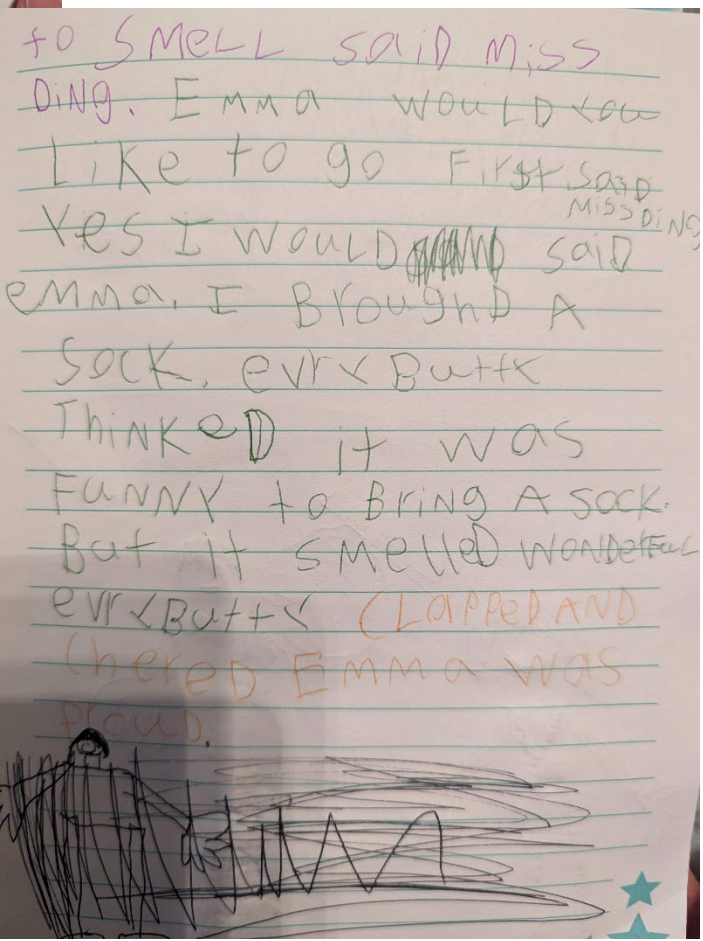 to SMeLL saiD Miss
DiNg. EMMa WouLD You
Like to go First SaiD
Miss DiNg
Yes I WouLD saiD
eMMa. I BroughD A
Sock. evrY ButtY
ThiNKeD it was
FuNNY to BriNg A sock.
But it sMelleD WoNDerFuLL
evrYButtY CLappeD AND
Chered EMMa was
prouD.